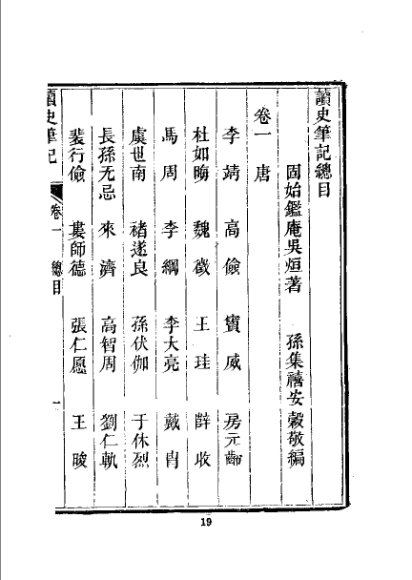 讀史筆記總目
固始鑑庵吳烜著　孫集禧安穀敬編
卷一　唐
李靖　高儉　竇威　房元齡
杜如晦　魏徵　王珪　薛收
馬周　李綱　李大亮　戴胄
虞世南　褚遂良　孫伏伽　于休烈
長孫无忌　來濟　高智周　劉仁軌
裴行儉　婁師德　張仁愿　王晙
讀史筆記　卷一　總目　一
19